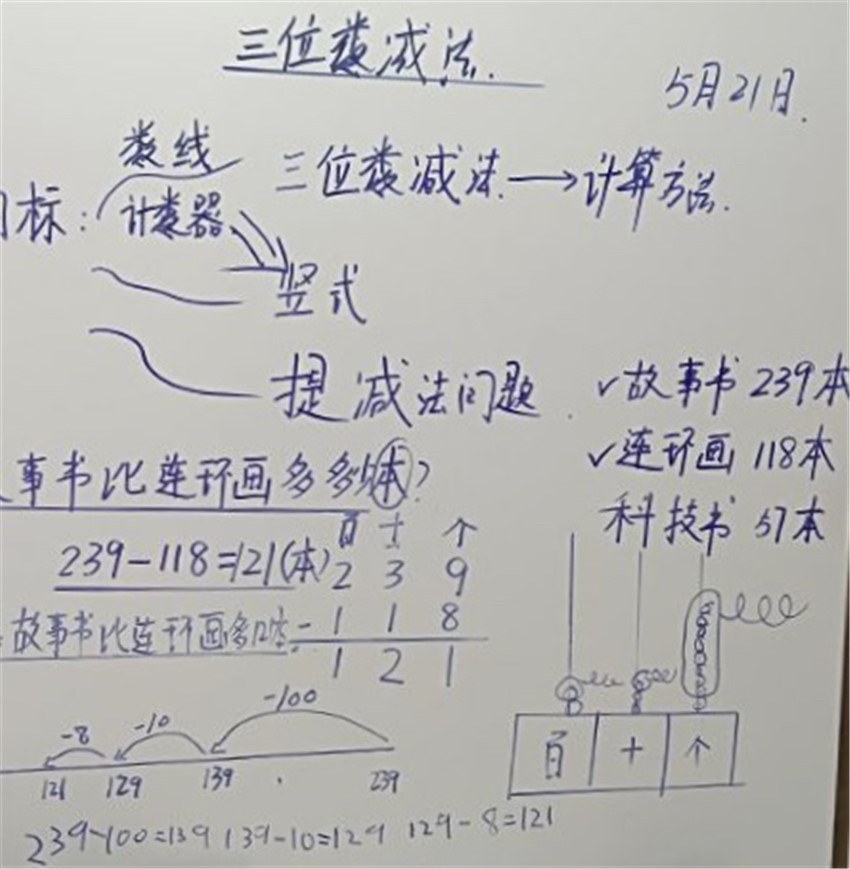 三位数减法.
5月21日.
数线
三位数减法.→计算方法.
目标:
计数器
竖式
提减法问题.
✓故事书 239本
✓连环画 118本
科技书 57本
事书比连环画多多少本?
百 十 个
239-118=121(本)
2 3 9
故事书比连环画多121本.
- 1 1 8
1 2 1
-100
-10
-8
121 129 139 239
百 十 个
239-100=139 139-10=129 129-8=121